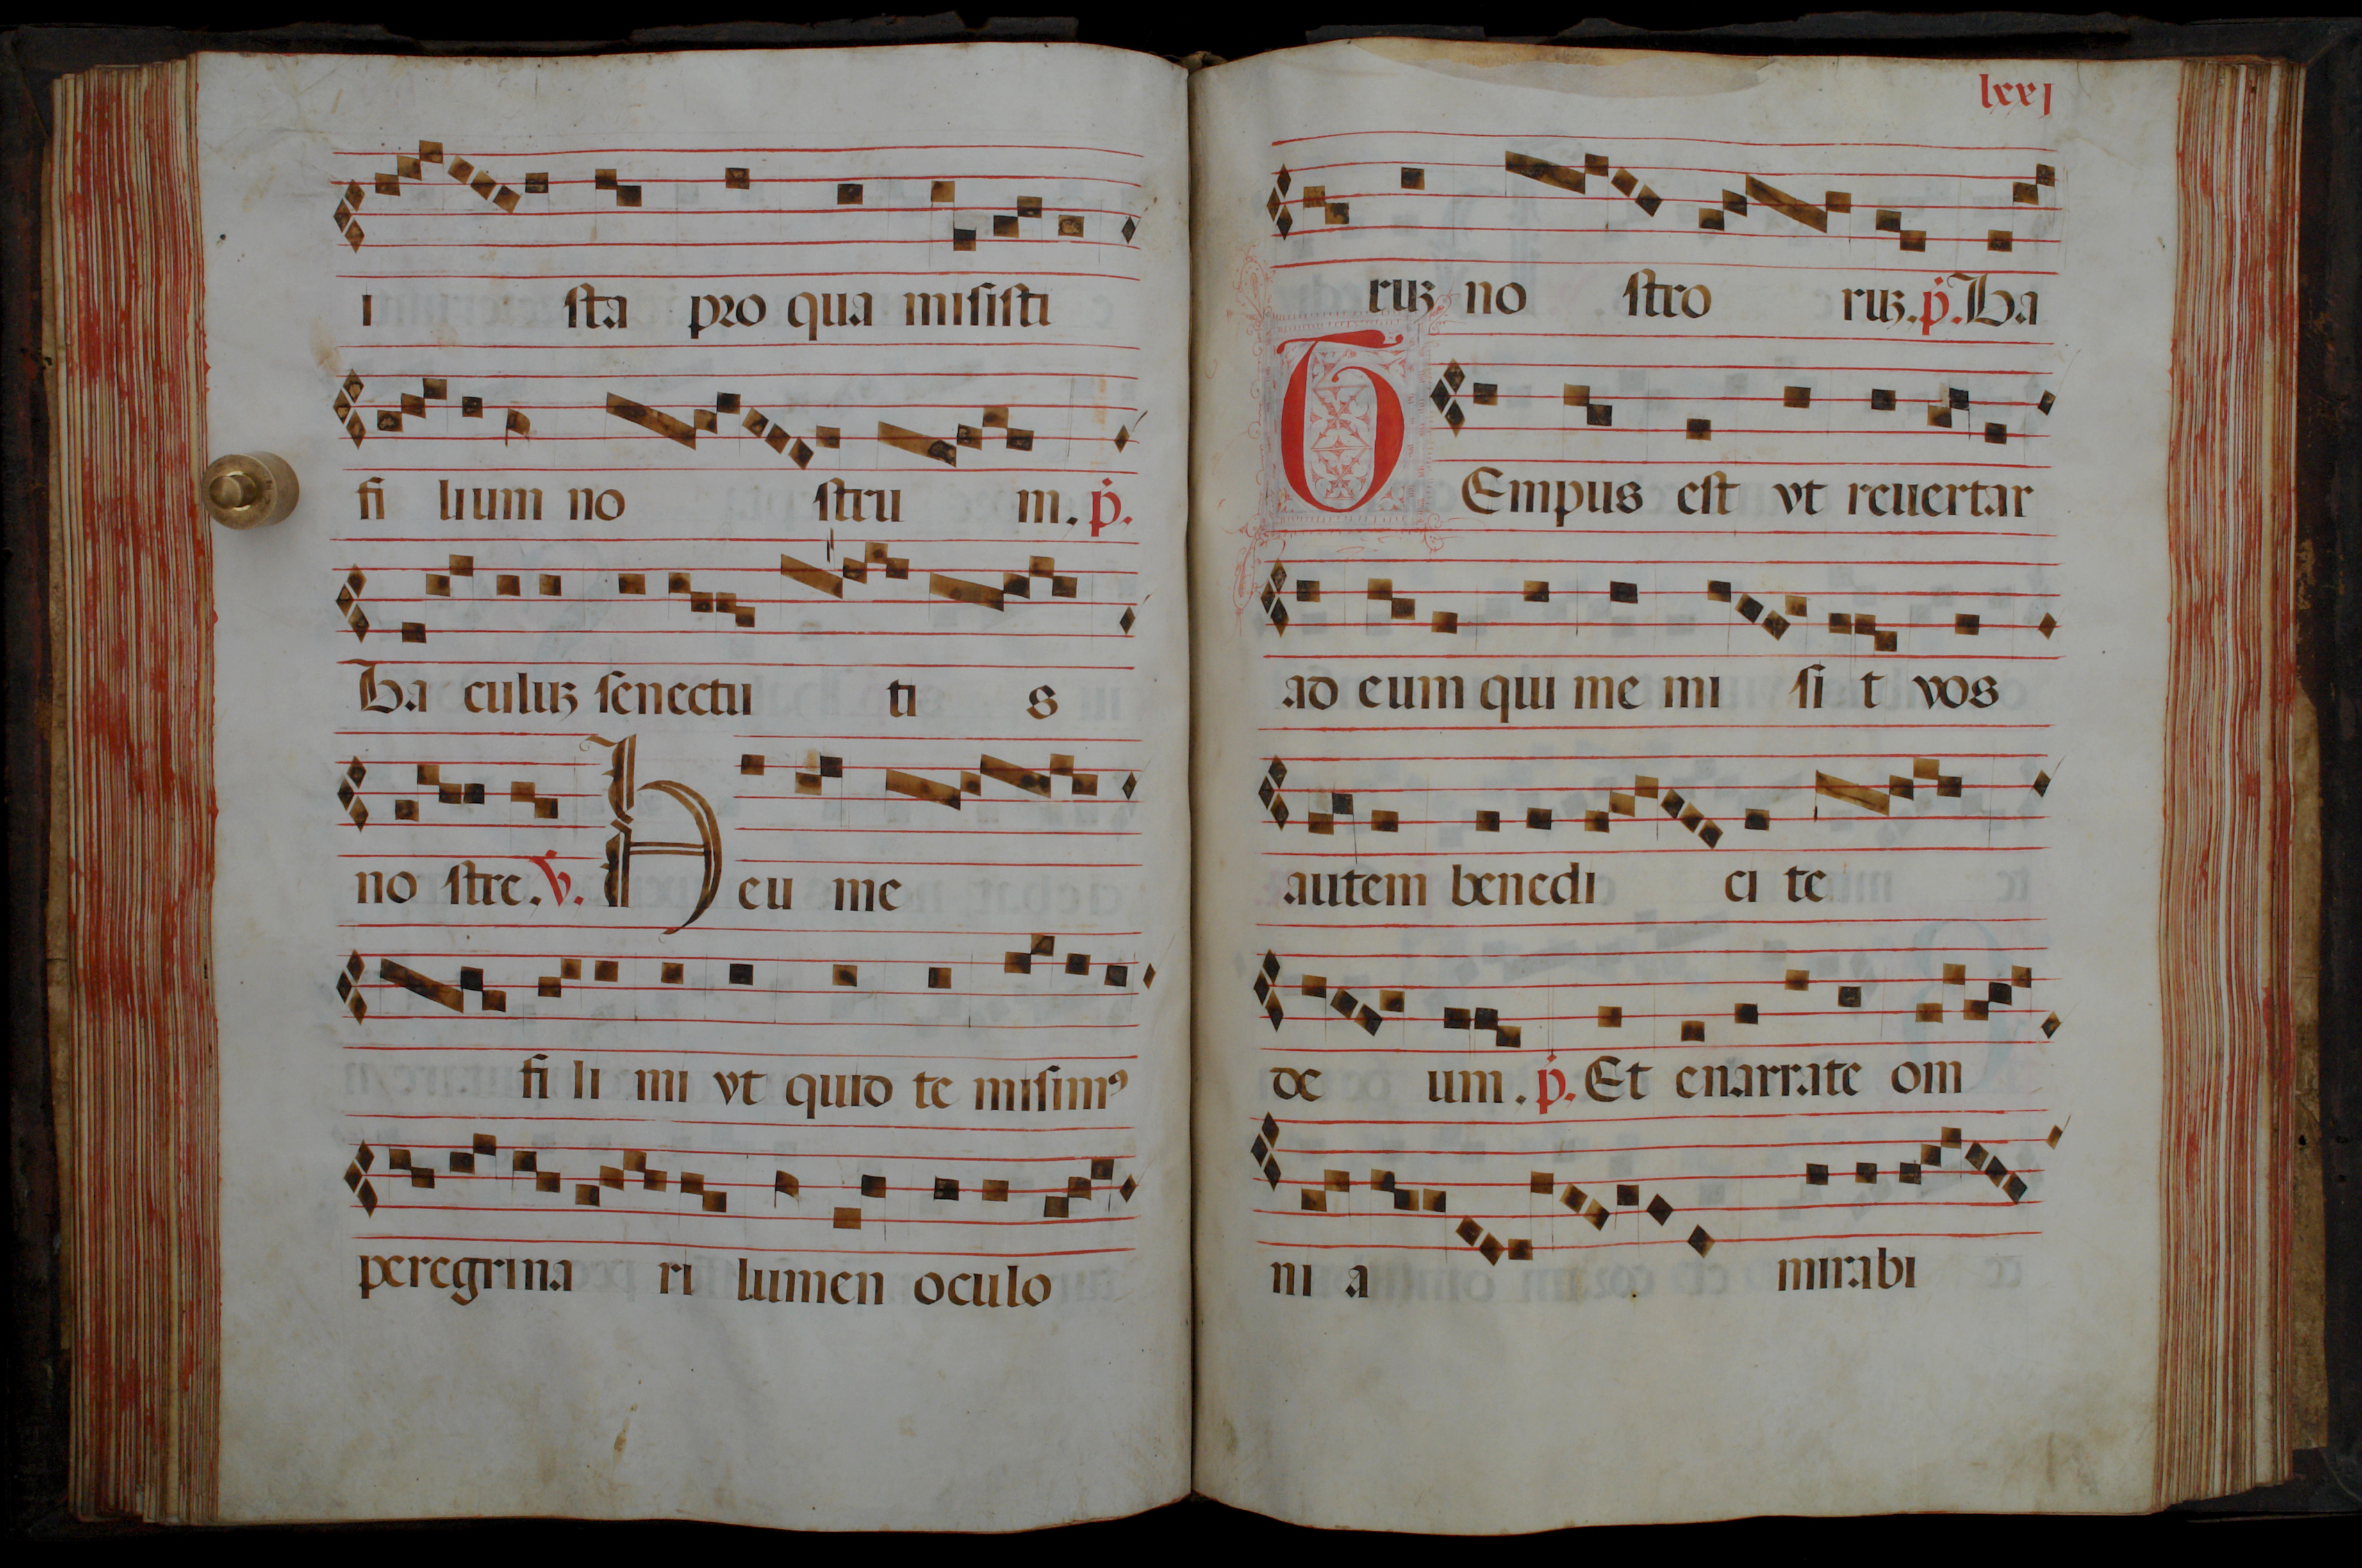 i sta pro qua misisti
fi lium no stru m. p̓.
Ba culuꝫ senectu ti s
no stre. v̓. Heu me
fi li mi vt quid te misimꝰ
peregrina ri lumen oculo
lxxj
ruꝫ no stro ruꝫ. p̓. Ba
TEmpus est vt reuertar
ad eum qui me mi si t vos
autem benedi ci te
de um. p̓. Et enarrate om
ni a mirabi